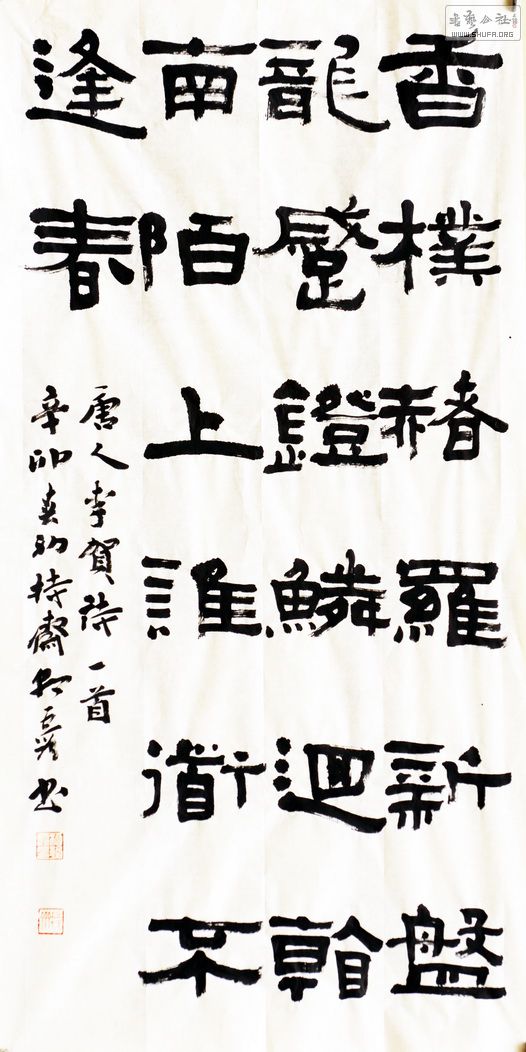 書藝公社
WWW.SHUFA.ORG
香樸赭羅新盤
龍蹙鐙鱗迴看
南陌上誰衟不
逢春
唐人李賀詩一首
辛卯春初持齋書